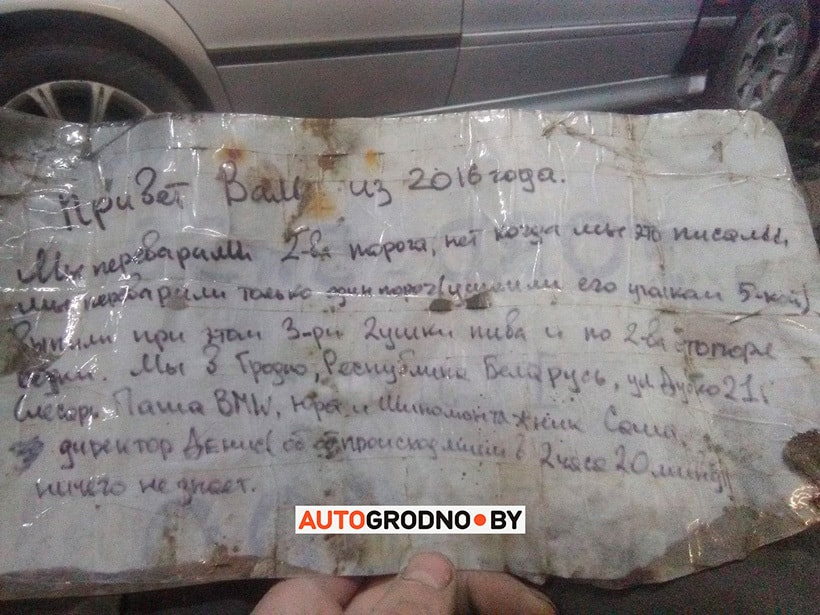 Привет Вам из 2016 года.
Мы переварили 2-ва порога, нет когда мы это писали
мы переварили только один порог (усилили его уголком 5-кой)
Выпили при этом 3-ри 2ушки пива и по 2-ва стопоре
водки. Мы в Гродно, Республика Беларусь, ул Дубко 21
Слесарь Паша BMW, Юра и Шиномонтажник Саша.
директор Денис об происходящем в 2 часа 20 минут
ничего не знает.
AUTOGRODNO.BY